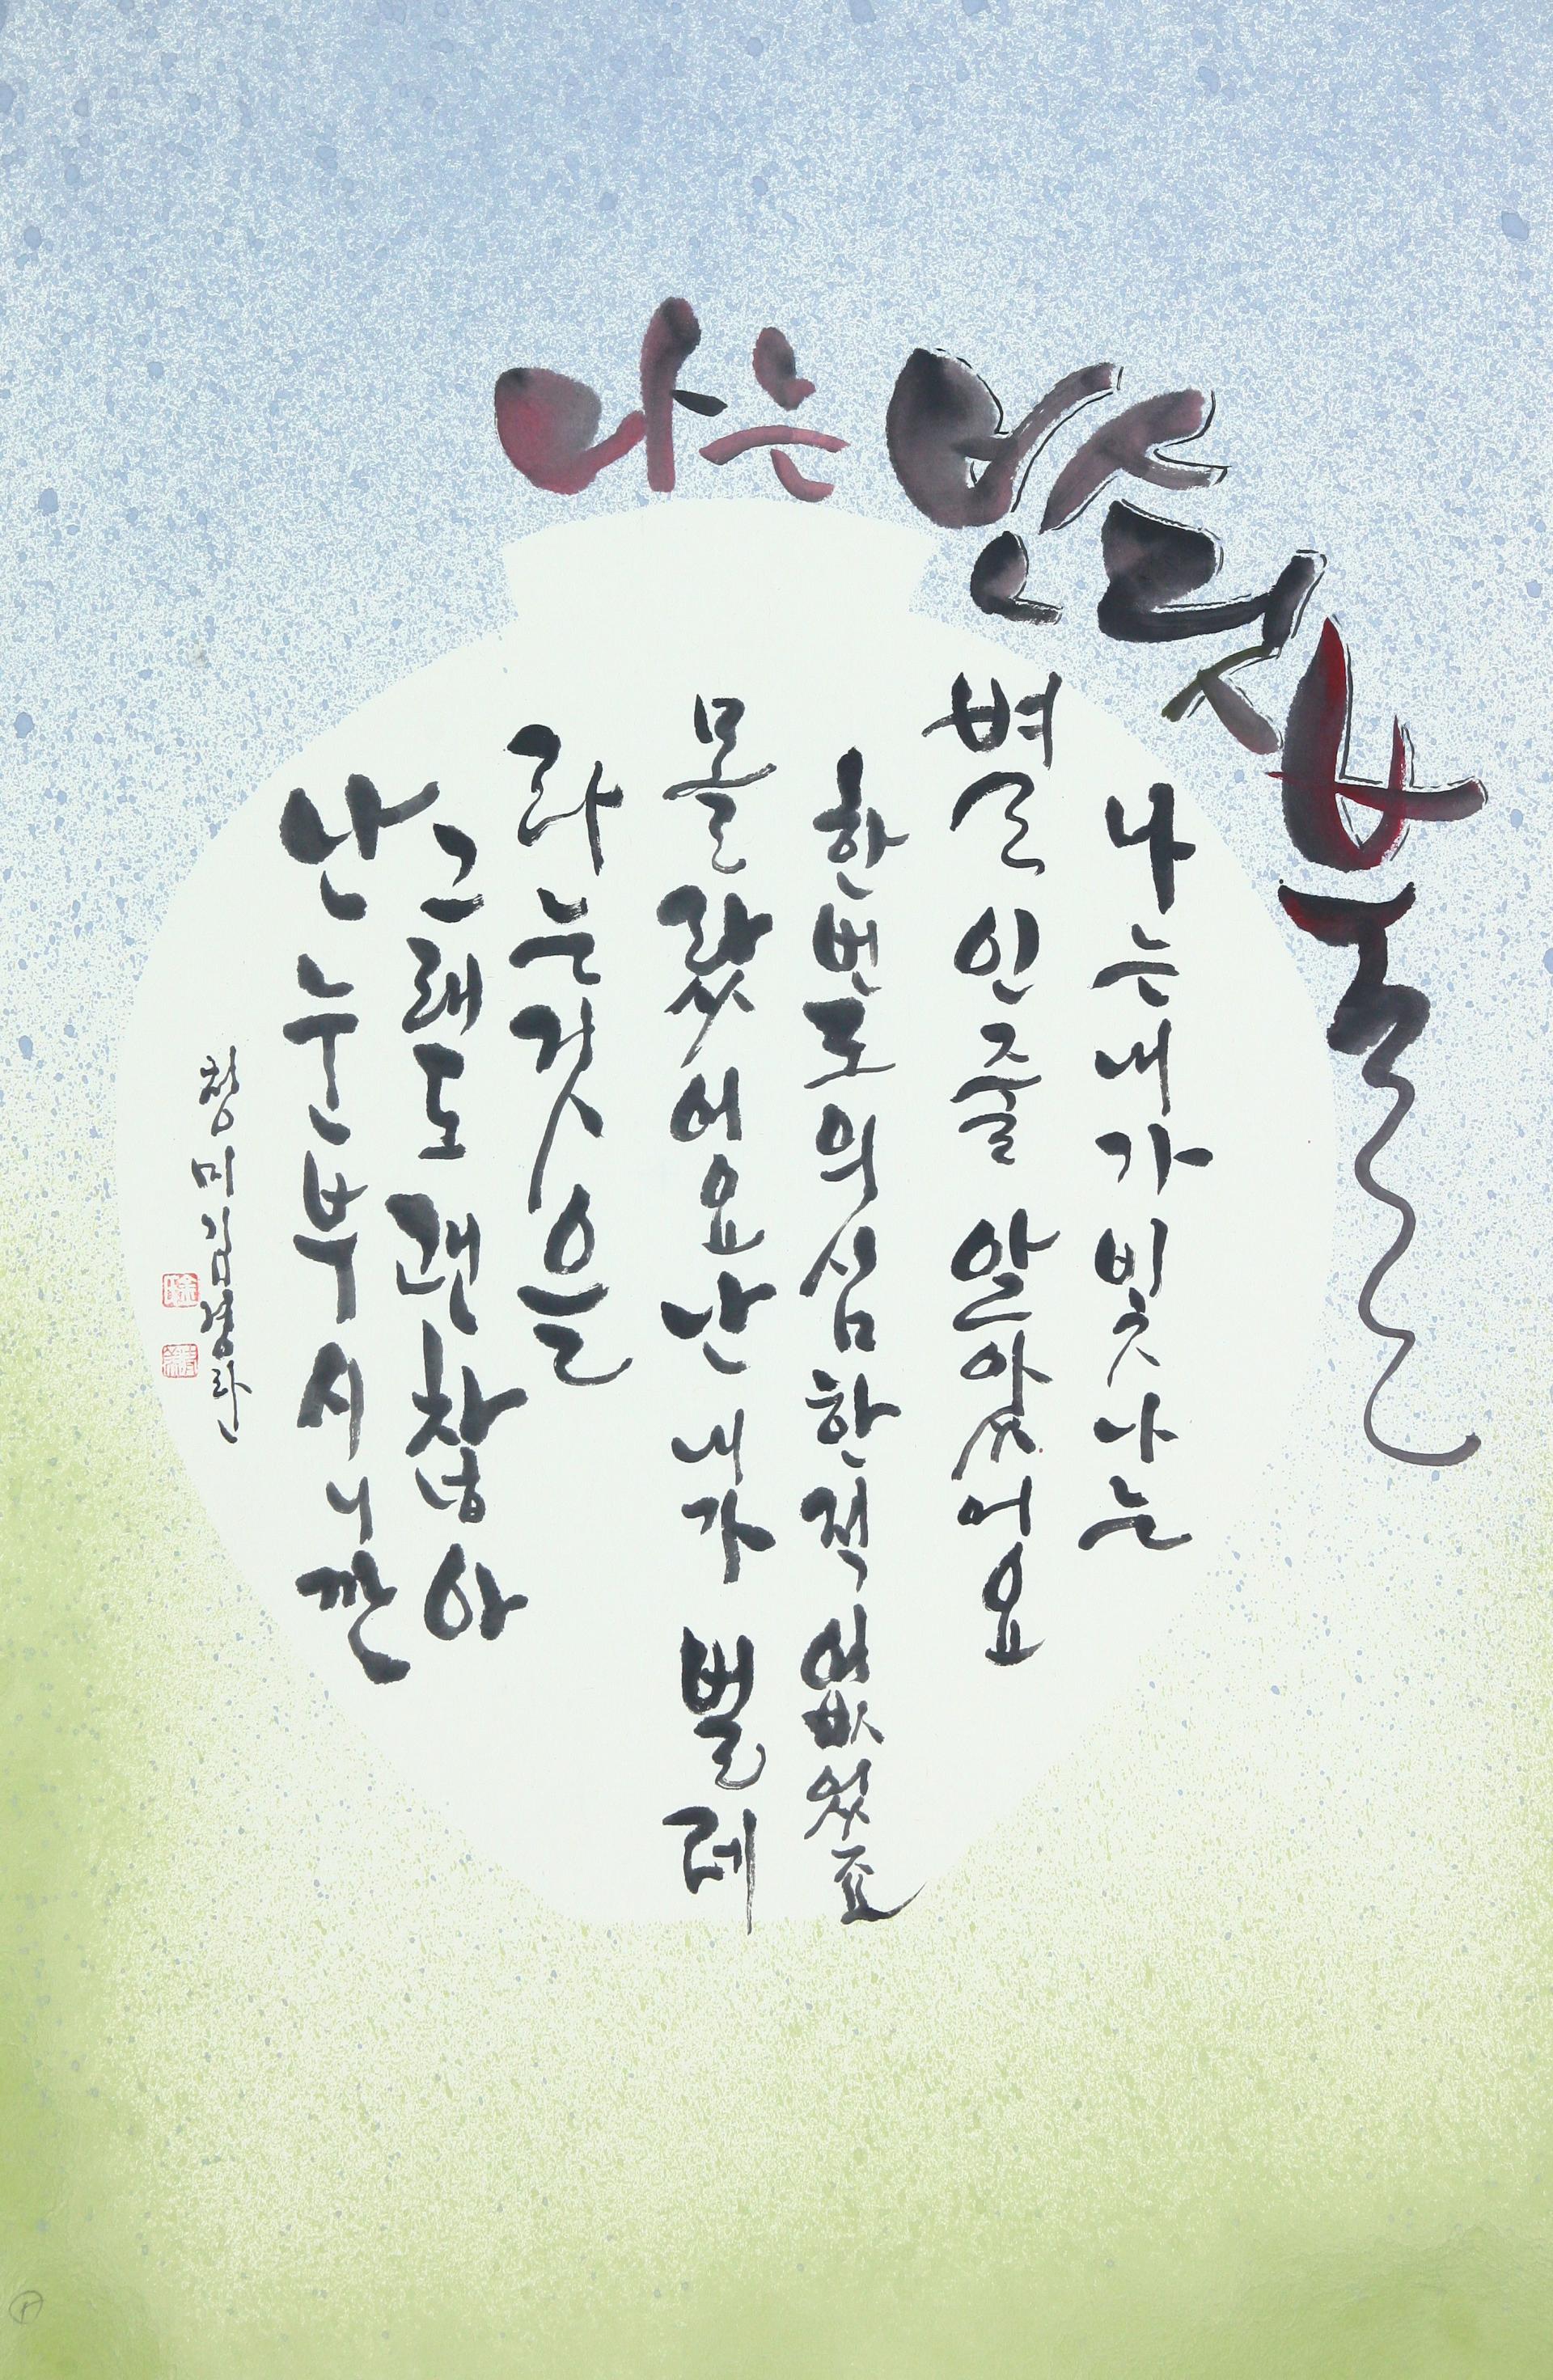 나는 반딧불
나는 내가 빛나는
별인 줄 알았어요
한번도 의심한 적 없었죠
몰랐어요 난 내가 벌레
라는 것을
그래도 괜찮아
난 눈부시니깐
청미 김경란